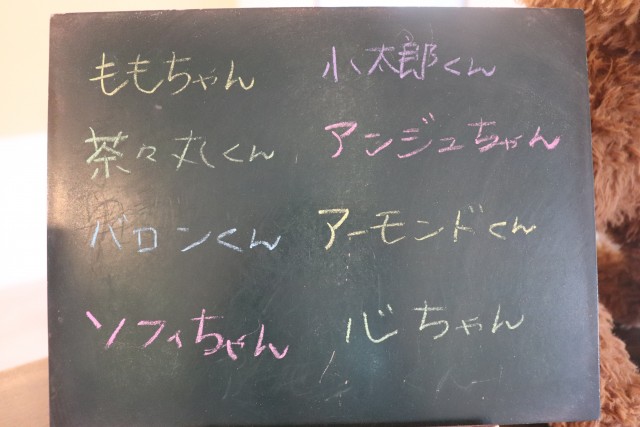 ももちゃん
小太郎くん
茶々丸くん
アンジュちゃん
バロンくん
アーモンドくん
ソフィちゃん
心ちゃん